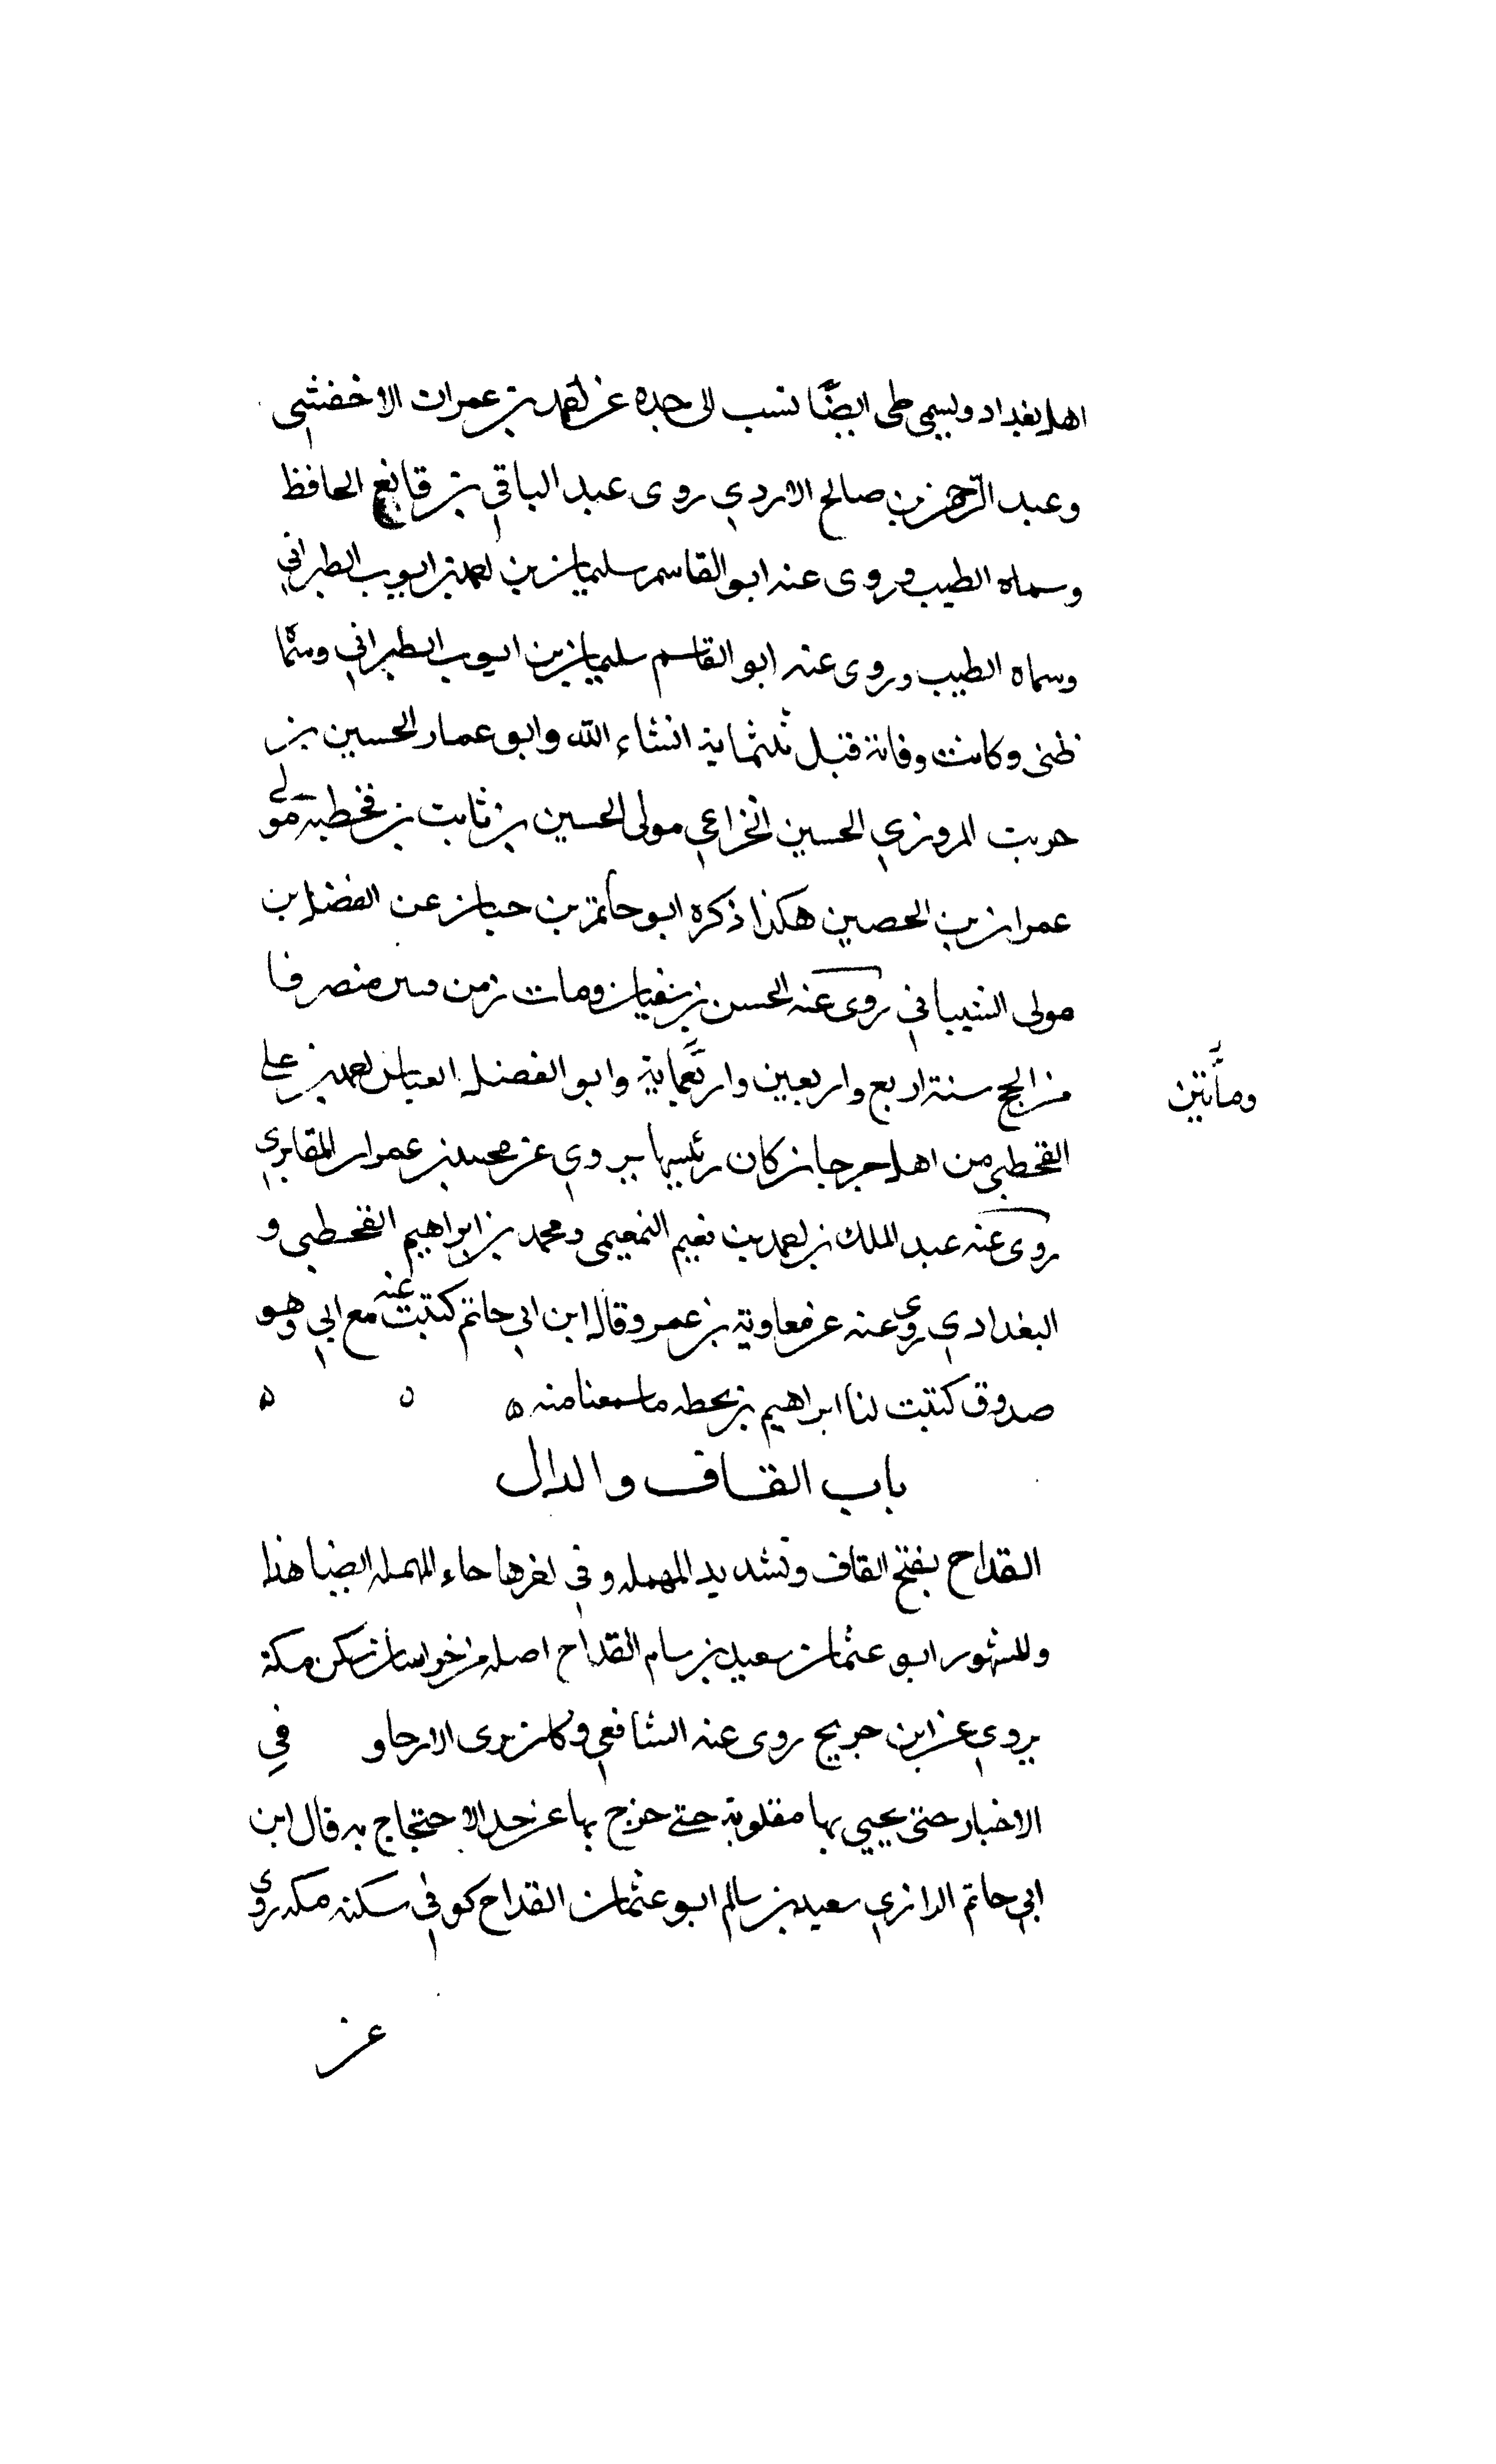 اهل بغداد ويسمى طى ايضًا نسب الى جده عن احمد بن عمران الاخفشى
وعبد الرحمن بن صالح الازدي روى عبد الباقي بن قانع الحافظ
وسماه الطيب وروى عنه ابو القاسم سليمان بن احمد بن ايوب الطبراني
وسماه الطيب وروى عنه ابو القاسم سليمان بن ايوب الطبراني وسمّا
ظنى وكانت وفاته قبل ثلثماية انشاء الله وابو عمار الحسين بن
حريث المروزي الحسين الخزاعي مولى الحسين بن ثابت بن قحطبه مولى
عمران بن الحصين هكذا ذكره ابو حاتم بن حبان عن الفضل بن
مولى الشيباني روى عنه الحسن بن سفيان ومات زمن منصرفا
من الحج سنة اربع واربعين واربعماية وابو الفضل العباس احمد بن علي
ومأتين
القحطبي من اهل جرجان كان رئيسها يروي عن محمد بن عمران المقابري
روى عنه عبد الملك بن احمد بن نعيم النعيمى ومحمد بن ابراهيم القحطبى و
البغدادي روى عنه عن معاوية بن عمرو قال ابن ابي حاتم كتبت عنه مع ابي وهو
صدوق كتبت لنا ابراهيم بن بخطه ما سمعنا منه ٥ ٥ ٥
باب القاف والدال
القداح بفتح القاف وتشديد المهمله وفي اخرها حاء المهمله ايضا هذا
والمشهور ابو عثمان سعيد بن سام القداح اصله من خراسان سكن مكة
يروي عن ابن جريج روى عنه الشافعي وكان يرى الارجا و في
الاخبار حتى يجيي بها مقلوبة حتى خرج بها عن حد الاحتجاج به قال ابن
ابي حاتم الرازي سعيد بن سالم ابو عثمان القداح كوفي سكنه مكه روى
عن